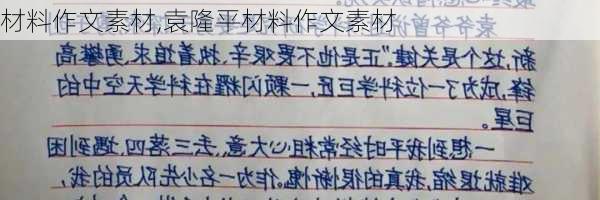 材料作文素材,袁隆平材料作文素材
袁爷爷曾说
新,这个是关键。”正是他不畏艰辛、执着追求、勇攀高
峰成为了一位科学巨匠,一颗闪耀在科学天空中的
巨星。
一想到我平时经常粗心大意、丢三落四,遇到困
难就退缩,我真的很惭愧。作为一名少先队员的我,